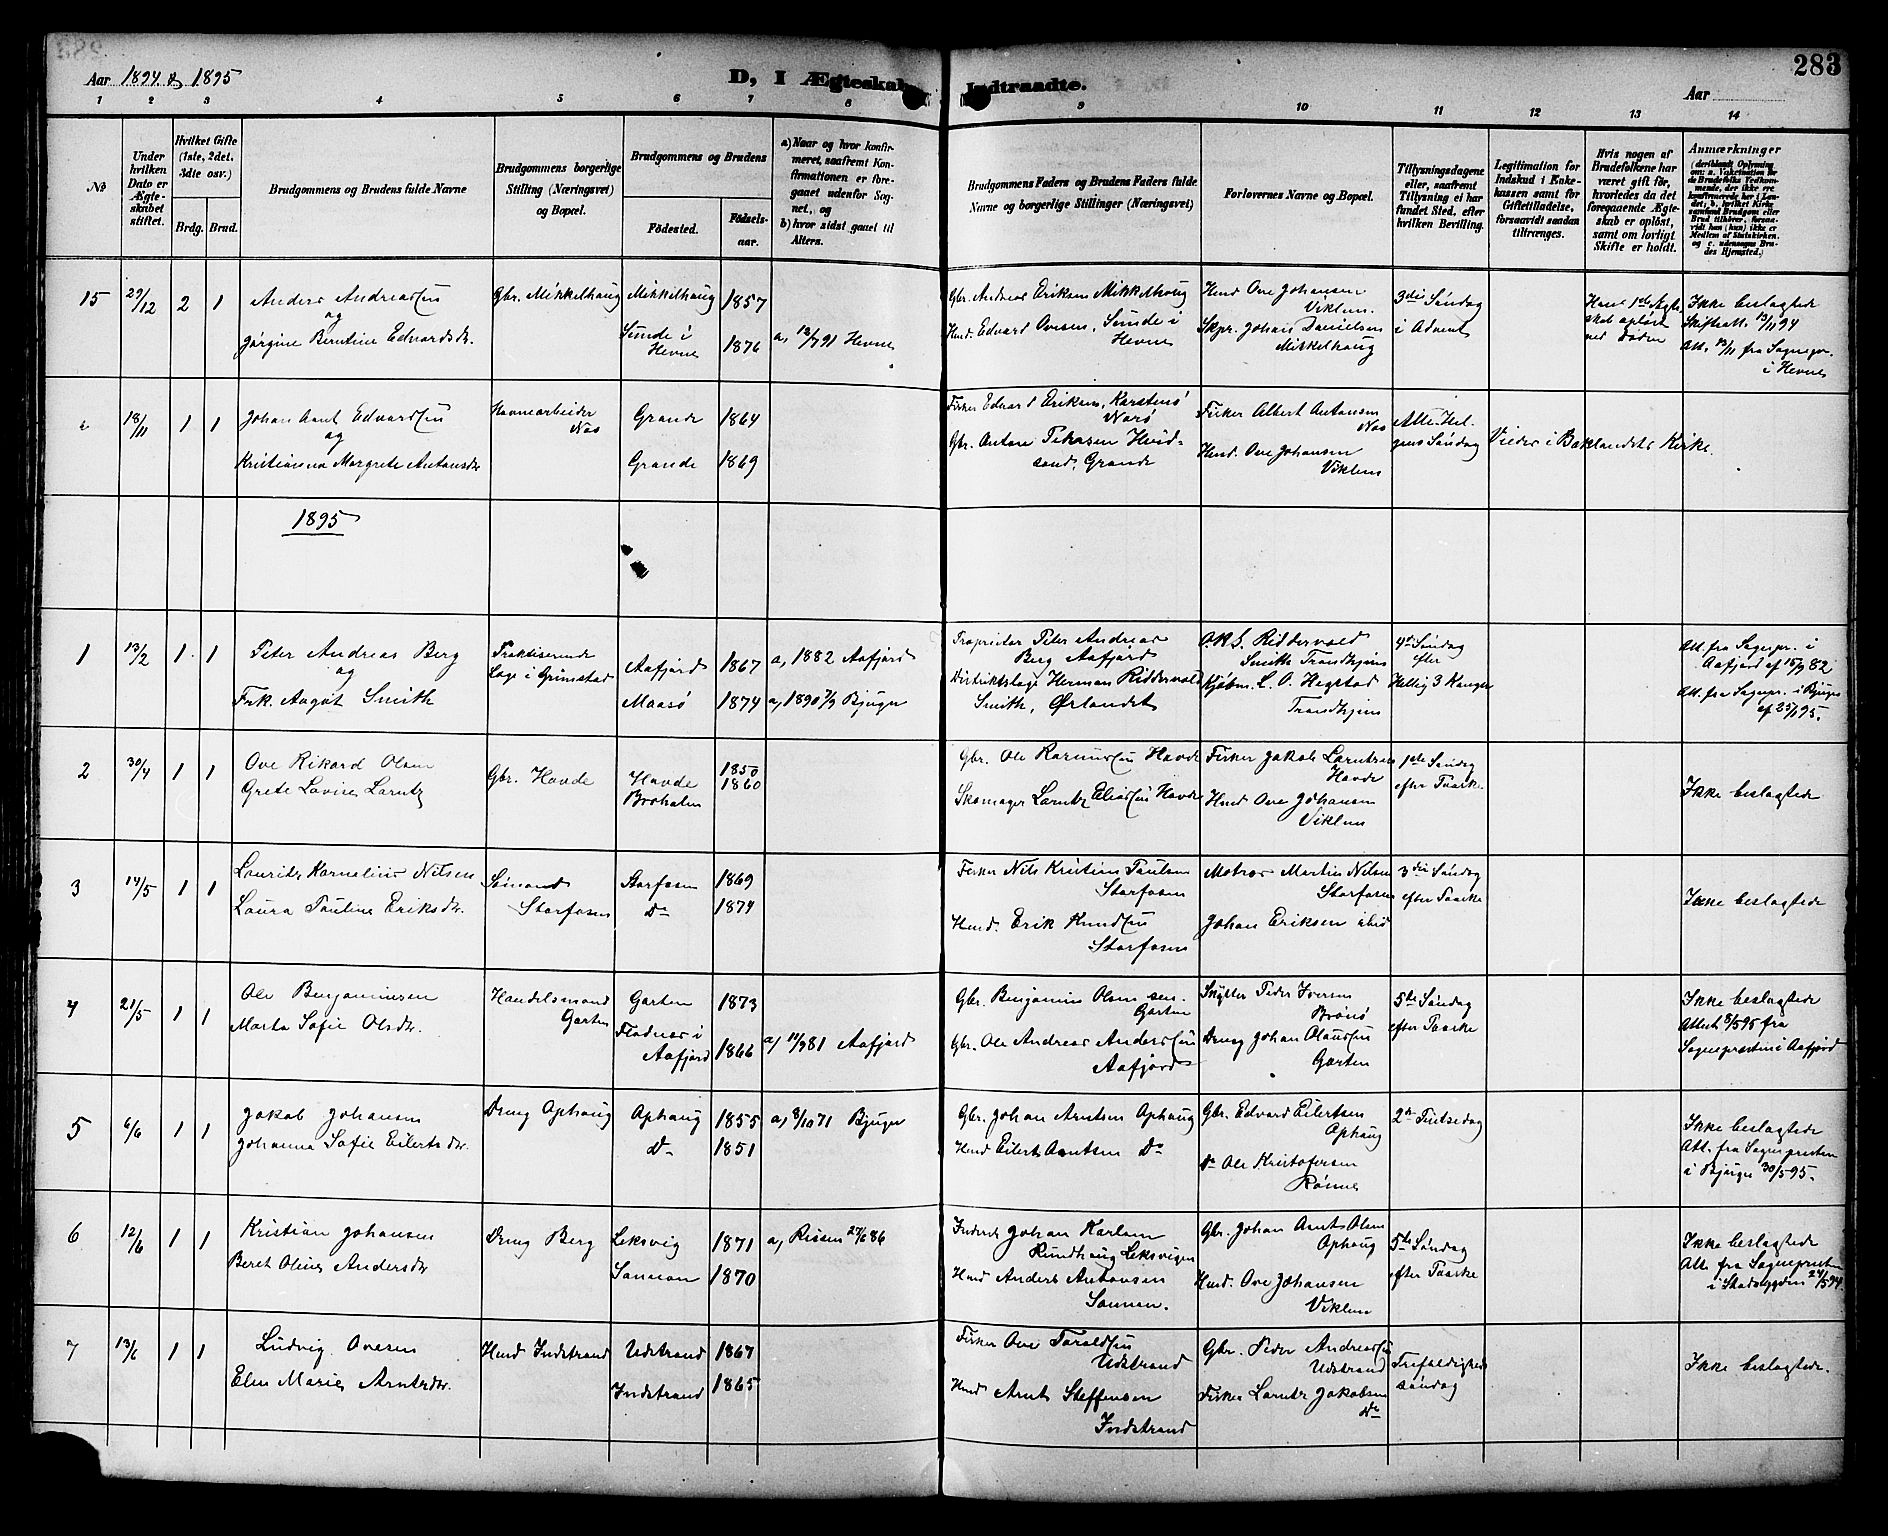 283
Aar 1894 & 1895
D, I Ægteskab Indtraadte.
Aar
1 2 3 4 5 6 7 8 9 10 11 12 13 14
No
Under hvilken Dato er Ægteskabet stiftet.
Hvilket Gifte (1ste, 2det, 3die osv.)
Brdg. Brud.
Brudgommens og Brudens fulde Navne
Brudgommens borgerlige Stilling (Næringsvei) og Bopæl.
Brudgommens og Brudens
Fødested. Fødselsaar.
a) Naar og hvor konfirmeret, saafremt Konfirmationen er foregaaet udenfor Sognet, og
b) hvor sidst gaaet til Alters.
Brudgommens Faders og Brudens Faders fulde Navne og borgerlige Stillinger (Næringsvei)
Forlovernes Navne og Bopæl.
Tillysningsdagene eller, saafremt Tillysning ei har fundet Sted, efter hvilken Bevilling.
Legitimation for Indskud i Enkekassen samt for Giftetilladelse, forsaavidt saadan tiltrænges.
Hvis nogen af Brudefolkene har været gift før, hvorledes da det foregaaende Ægteskab er opløst, samt om lovligt Skifte er holdt.
Anmærkninger
15 29/12 2 1
Anders Andreassen
og
Jørgine Berntine Edvardsdr.
Gbr. Mikkelhaug
Mikkelhaug 1857
Sunde i Hevne 1876
a, 13/7 91 Hevne
Gbr. Andreas Eriksen Mikkelhaug
Husd. Edvard Ovesen, Sunde i Hevne
Husd Ove Johansen Viklem.
Skpr. Johan Danielsen Mikkelhaug
3die Søndag i Advent
Hans 1ste Ægteskab opløst ved Døden
Ikke beslægtede
Skifteatt. 13/11 94
Att. 13/11 fra Sognepr. i Hevne
18/11 1 1
Johan Arnt Edvardsen
og
Kristianna Margrete Antonsdr
Havnearbeider
Grande 1864
Grande 1869
Fisker Edvard Eriksen,
Gbr. Anton Petersen
Grande
Fisker Albert Antonsen
Husd. Ove Johansen Viklem
Alle Helgens Søndag
Viedes i Baklandets Kirke.
1895
1 13/2 1 1
Peter Andreas Berg
og
Frk. Aagot Smith
Praktiserende Læge i Grimstad
Aafjord 1867
Maasø 1874
a, 1882 Aafjord
a, 1890 7/9 Bjugn
Proprietær Peter Andreas Berg Aafjord
Distriktslæge Herman Riddervold Smith, Ørlandet
Riddervold Smith Trondhjem
Kjøbm. L. O. Hegstad Trondhjem
4de Søndag efter Hellig 3 Konger
Att. fra Sognepr. i Aafjord af 15/9 82
Att. fra Sognepr. i Bjugn af 25/1 95.
2 30/4 1 1
Ove Rikard Olsen
Grete Lovise Larntz
Gbr. Hovde
Hovde 1850
Broholm 1860
Gbr. Ole Rasmussen Hovde
Skomager Larntz Eliassen Hovde
Fisker Jakob Larntzen Hovde
Husd Ove Johansen Viklem
1ste Søndag efter Paaske
Ikke beslægtede
3 14/5 1 1
Laurits Kornelius Nilsen
Laura Pauline Eriksdr.
Sømand Storfosen
Storfosen 1869
Do 1874
Fisker Nils Kristian Paulsen Storfosen
Husd. Erik Knudsen Storfosen
Matros Martin Nilsen Storfosen
Johan Eriksen ibid
3die Søndag efter Paaske
Ikke beslægtede
4 21/5 1 1
Ole Benjaminsen
Marta Sofie Olsdr.
Handelsmand Garten
Garten 1873
Flodnes i Aafjord 1866
a, 11/9 81 Aafjord
Gbr. Benjamin Olsen sen. Garten
Gbr. Ole Andreas Anderssen Aafjord
Skytter Peder Iversen
Dreng Johan Olaussen Garten
5te Søndag efter Paaske
Ikke beslægtede
Attest 8/5 95 fra Sognepresten i Aafjord
5 6/6 1 1
Jakob Johansen
Johanna Sofie Eilertsdr.
Dreng Ophaug
Ophaug 1855
Do 1851
a, 8/10 71 Bjugn
Gbr. Johan Arntsen Ophaug
Husd Eilert Arntsen Do
Gbr. Edvard Eilertsen Ophaug
Do Ole Kristofersen Rønne
2den Pintsedag
Ikke beslægtede
Att. fra Sognepresten i Bjugn 30/5 95.
6 12/6 1 1
Kristian Johansen
Beret Oline Andersdr
Dreng Berg
Leksvig 1871
1870
a, Rissen 27/6 86
Inderst Johan Karlsen Rundhaug Leksvigen
Husd Anders Antonsen
Gbr. Johan Arnt Olsen Ophaug
Husd. Ove Johansen Viklem
5te Søndag efter Paaske
Ikke beslægtede
Att. fra Sognepresten i Stadsbygden 24/5 94.
7 13/6 1 1
Ludvig Ovesen
Elen Marie Arntsdr.
Husd Indstrand
Udstrand 1867
Indstrand 1865
Fisker Ove Taraldsen Udstrand
Husd Arnt Steffensen Indstrand
Gbr. Peder Andreassen Udstrand
Fisker Larntz Jakobsen Do
Trefoldigheds søndag
Ikke beslægtede.